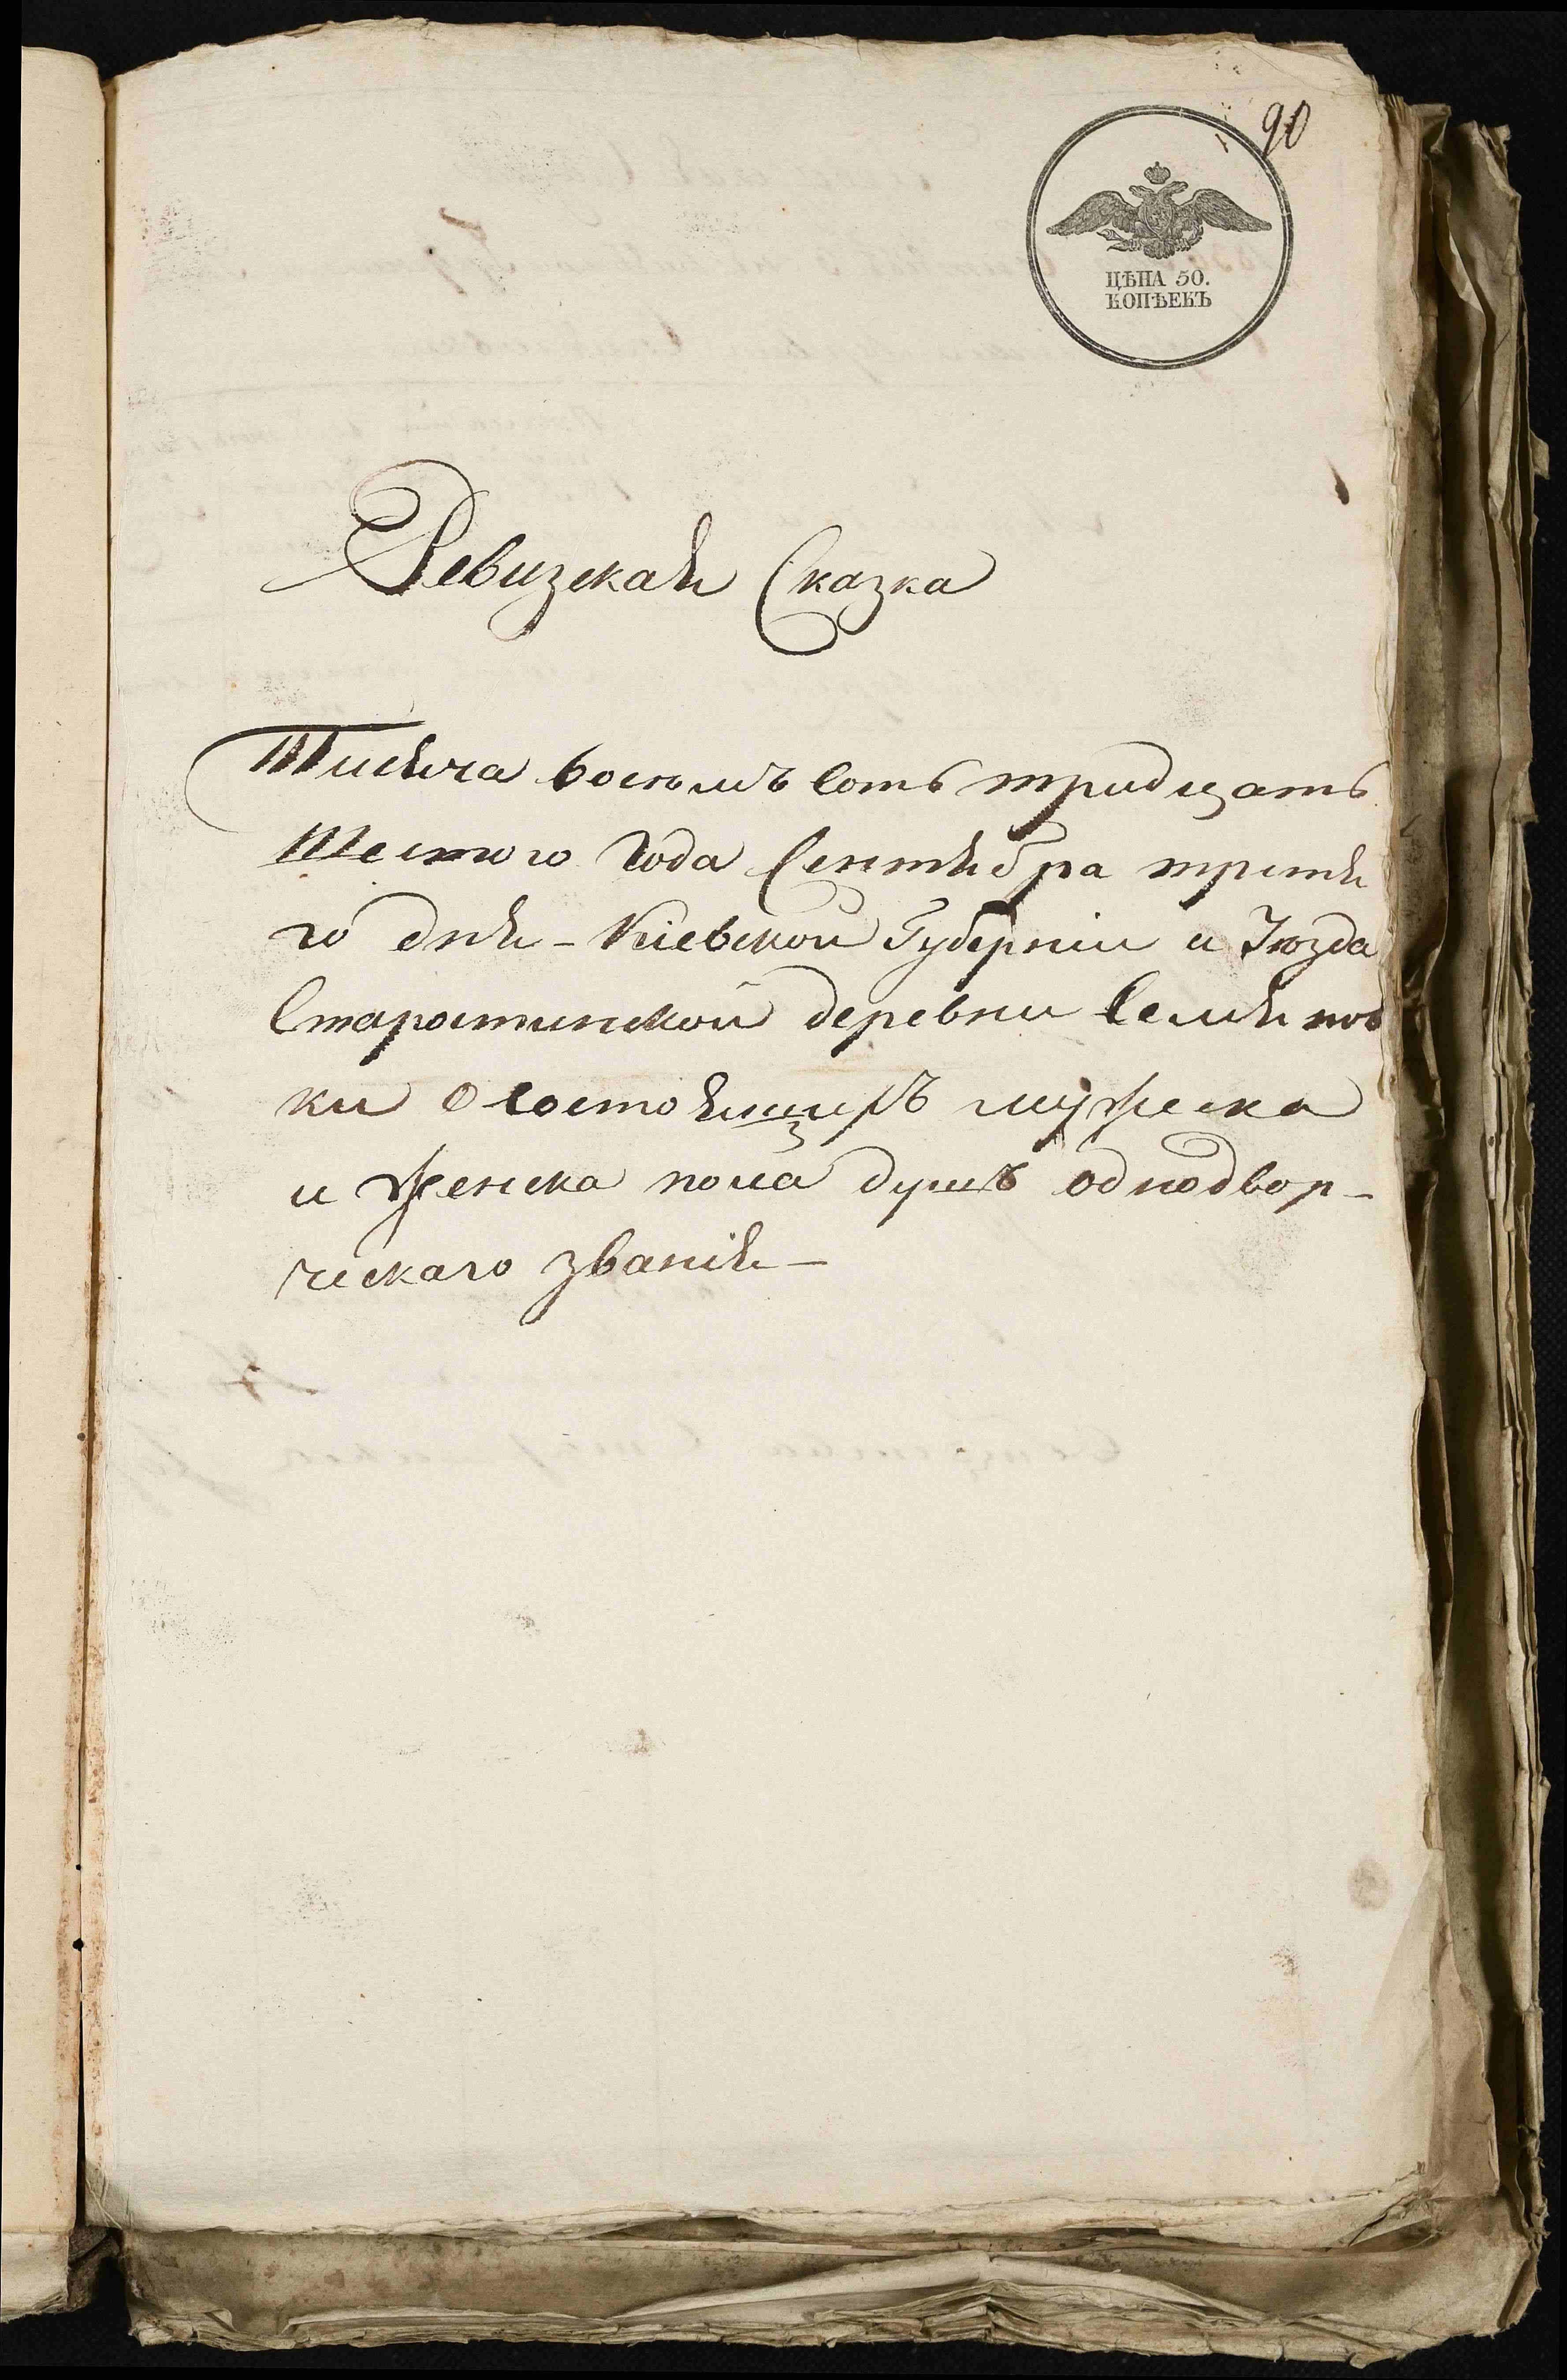 90
ЦѢНА 50.
КОПѢЕКЪ
Ревизская Сказка
Тисяча восюмъ сотъ тридцать
шестого года Сентября третя
го дня - Кіевской Губерніи и Уюзда
Старостинской деревни Семянов
ки о состоящихъ мужеска
и женска пола душъ однодвор-
ческаго званія -